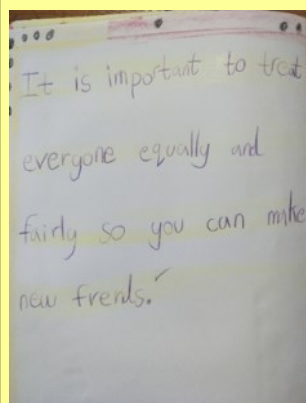 It is important to treat
everyone equally and
fairly so you can make
new frends.